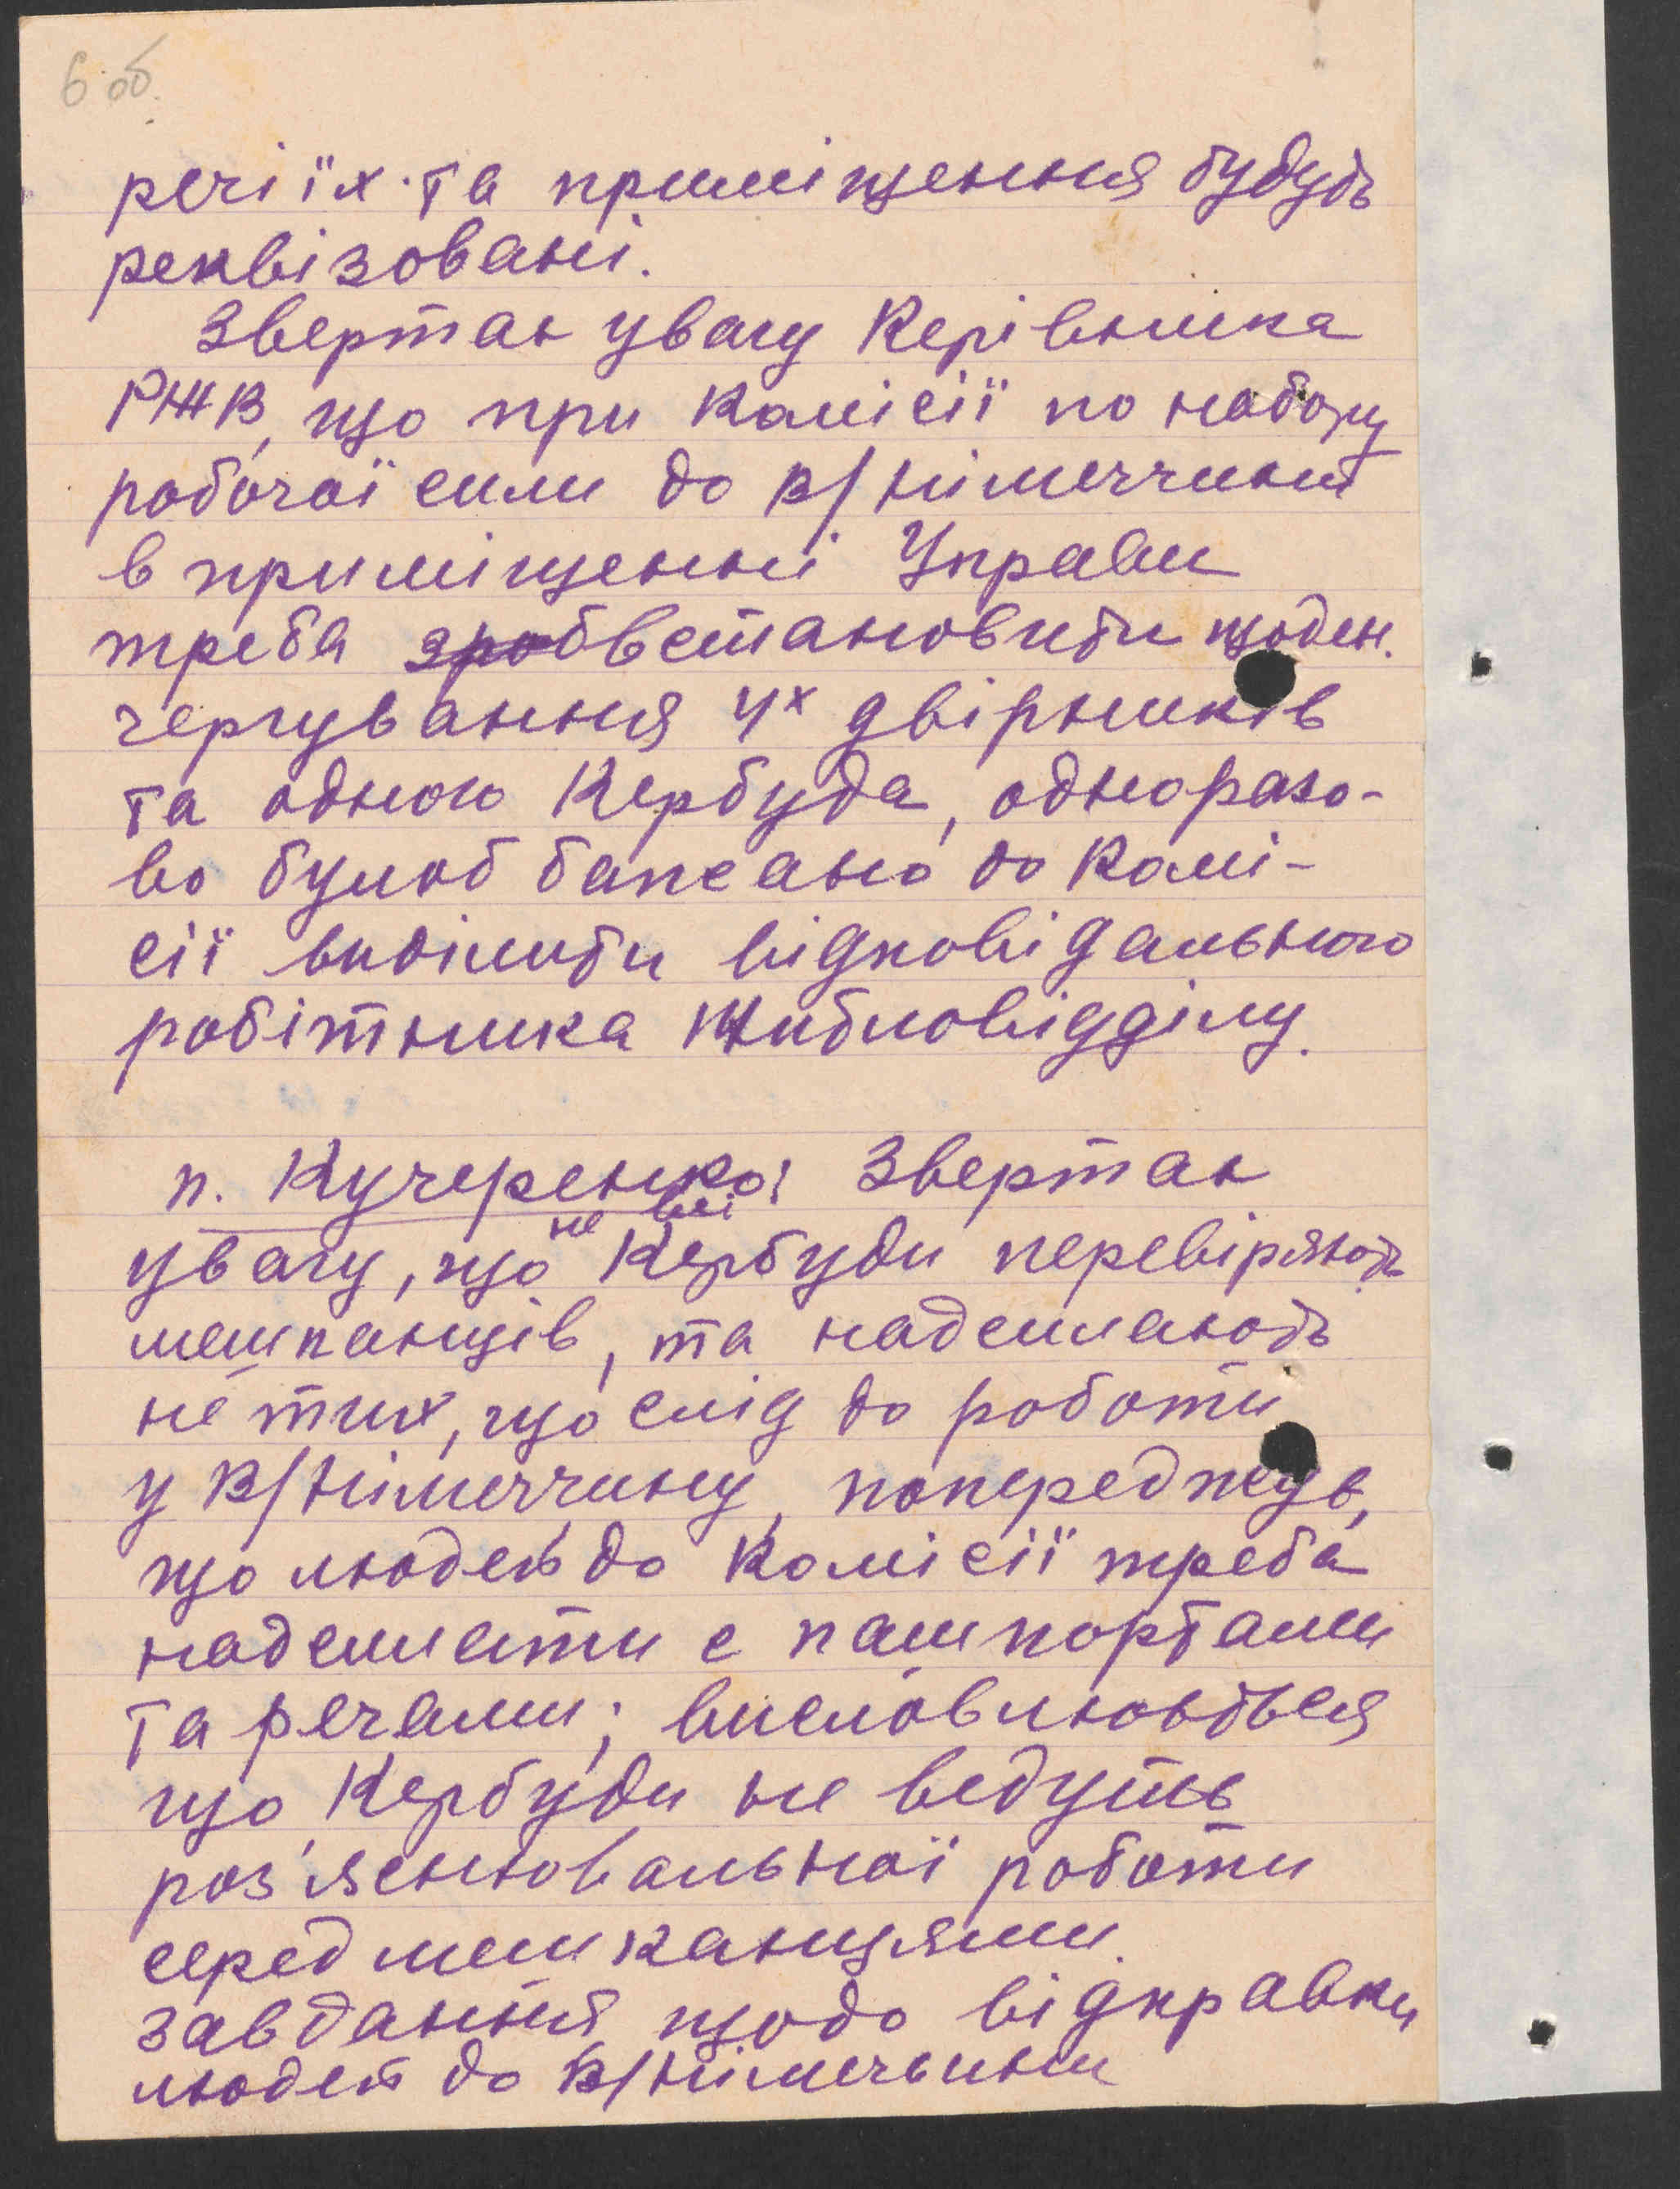 6 об.
речі їх та приміщення будуть
реквізовані.
Звертає увагу Керівника
РЖВ, що при Комісії по набору
робочої сили до В/Німеччини
в приміщенні Управи
треба зроб встановити щоден.
чергування 4х двірників
та одного Кербуда, одноразо-
во булоб бажано до Комі-
сії виділити відповідального
робітника Житловідділу.
п. Кучеренко: Звертає
не всі
увагу, що Кербуди перевіряють
мешканців, та надсилають
не тих, що слід до роботи
у В/Німеччину, попереджує,
що людей до Комісії треба
надсилати с пашпортами
та речами; висловлюється
що Кербуди не ведуть
роз'яснювальної роботи
серед мешканцями.
завдання щодо відправки
людей до В/Німеччини